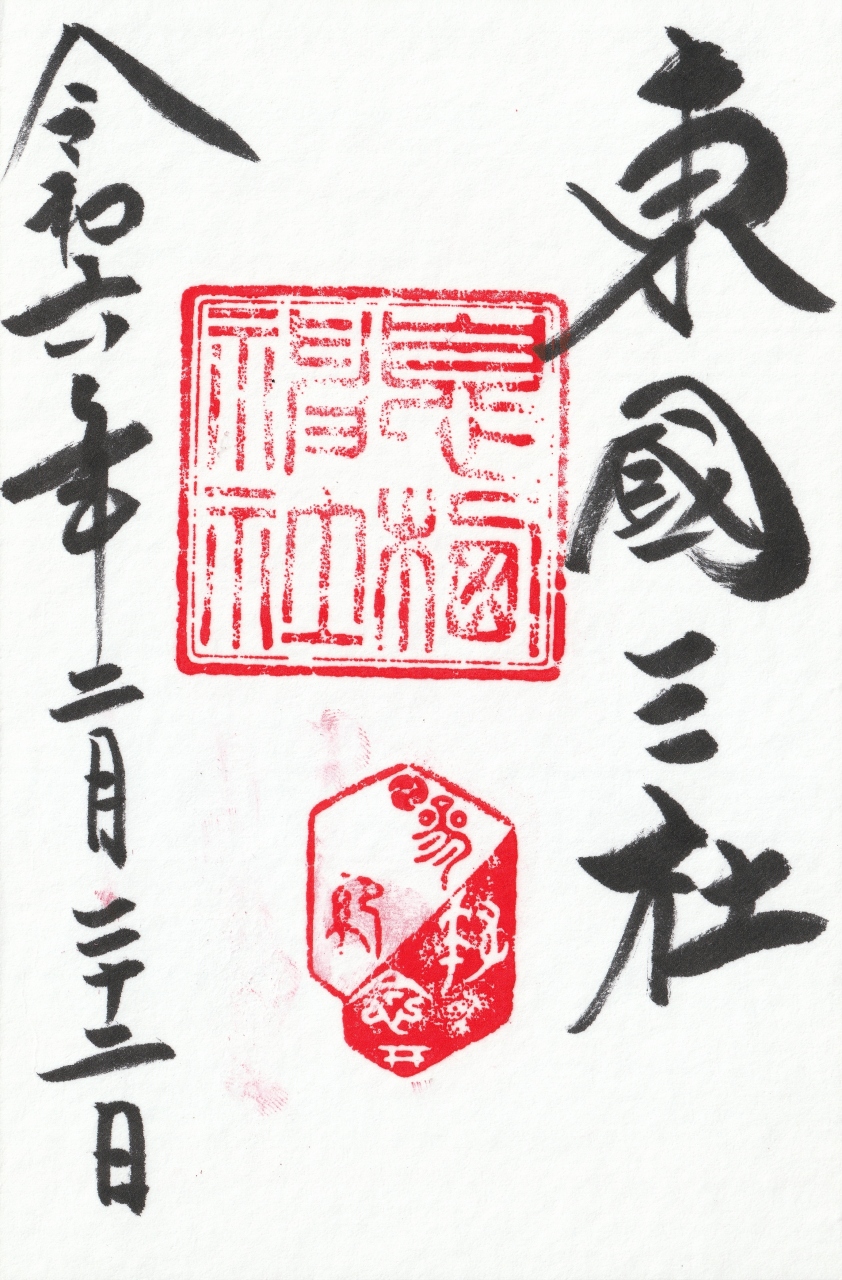 東國三社
息栖
神社
令和六年二月二十二日